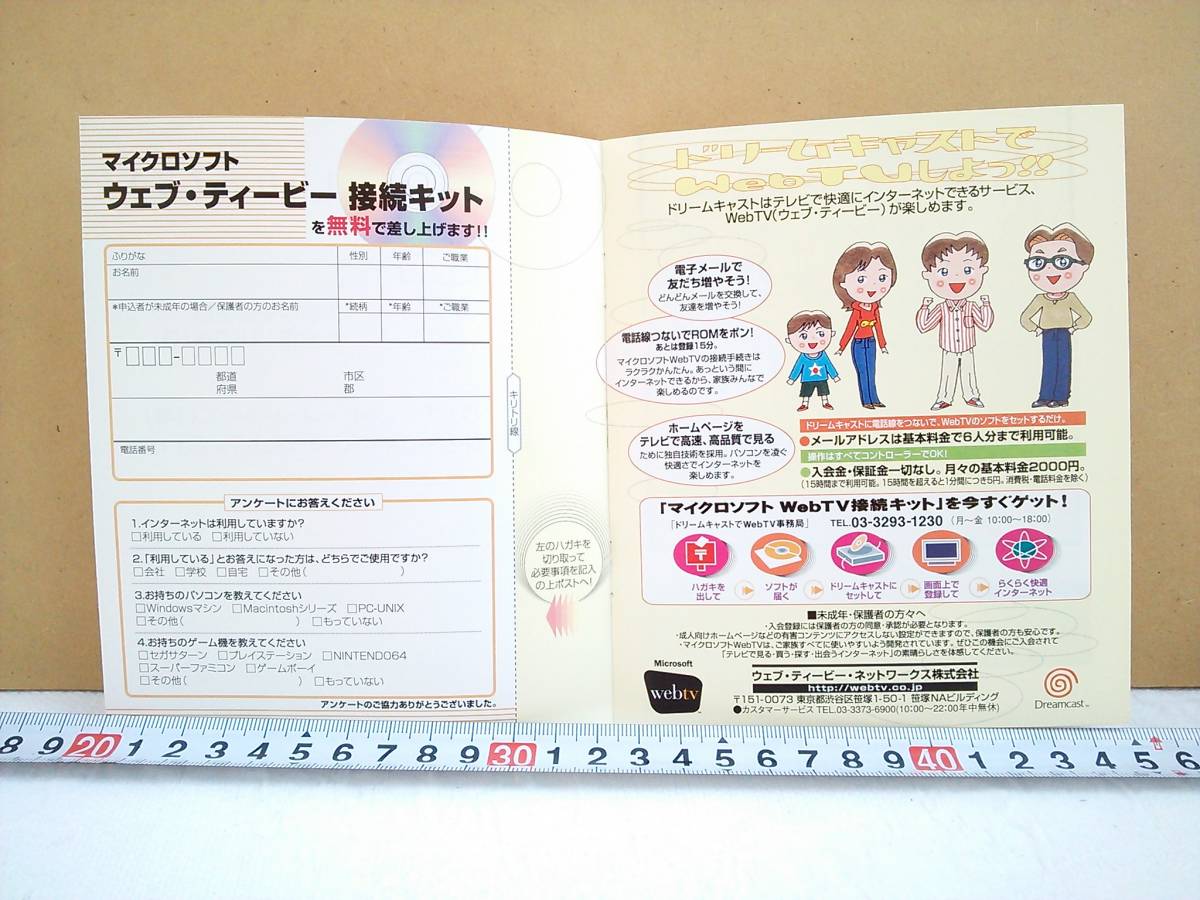 マイクロソフト
ウェブ・ティービー 接続キット
を無料で差し上げます!!
ふりがな
性別
年齢
ご職業
お名前
*申込者が未成年の場合/保護者の方のお名前
*続柄
*年齢
*ご職業
〒□□□-□□□□
都道 市区
府県 郡
電話番号
アンケートにお答えください
1.インターネットは利用していますか?
□利用している □利用していない
2.「利用している」とお答えになった方は、どちらでご使用ですか?
□会社 □学校 □自宅 □その他( )
3.お持ちのパソコンを教えてください
□Windowsマシン □Macintoshシリーズ □PC-UNIX
□その他( ) □もっていない
4.お持ちのゲーム機を教えてください
□セガサターン □プレイステーション □NINTENDO64
□スーパーファミコン □ゲームボーイ
□その他( ) □もっていない
アンケートのご協力ありがとうございました。
キリトリ線
左のハガキを
切り取って
必要事項を記入
の上ポストへ!
ドリームキャストで
WebTVしよっ!!
ドリームキャストはテレビで快適にインターネットできるサービス、
WebTV(ウェブ・ティービー)が楽しめます。
電子メールで
友だち増やそう!
どんどんメールを交換して、
友達を増やそう!
電話線つないでROMをポン!
あとは登録15分。
マイクロソフトWebTVの接続手続きは
ラクラクかんたん。あっという間に
インターネットできるから、家族みんなで
楽しめるのです。
ホームページを
テレビで高速、高品質で見る
ために独自技術を採用。パソコンを凌ぐ
快適さでインターネットを
楽しめます。
ドリームキャストに電話線をつないで、WebTVのソフトをセットするだけ。
●メールアドレスは基本料金で6人分まで利用可能。
操作はすべてコントローラーでOK!
●入会金・保証金一切なし。月々の基本料金2000円。
(15時間まで利用可能。15時間を超えると1分間につき5円。消費税・電話料金を除く)
「マイクロソフト WebTV接続キット」を今すぐゲット!
「ドリームキャストでWebTV事務局」 TEL.03-3293-1230 (月〜金 10:00〜18:00)
ハガキを
出して
ソフトが
届く
ドリームキャストに
セットして
画面上で
登録して
らくらく快適
インターネット
■未成年・保護者の方々へ
・入会登録には保護者の方の同意・承認が必要となります。
・成人向けホームページなどの有害コンテンツにアクセスしない設定ができますので、保護者の方も安心です。
・マイクロソフトWebTVは、ご家族すべてに使いやすいよう開発されています。ぜひこの機会にご入会されて
「テレビで見る・買う・探す・出会うインターネット」の素晴らしさを体感してください。
Microsoft
webtv
ウェブ・ティービー・ネットワークス株式会社
http://webtv.co.jp
〒151-0073 東京都渋谷区笹塚1-50-1 笹塚NAビルディング
●カスタマーサービス TEL.03-3373-6900(10:00〜22:00年中無休)
Dreamcast™
8 9 20 1 2 3 4 5 6 7 8 9 30 1 2 3 4 5 6 7 8 9 40 1 2 3 4 5 6